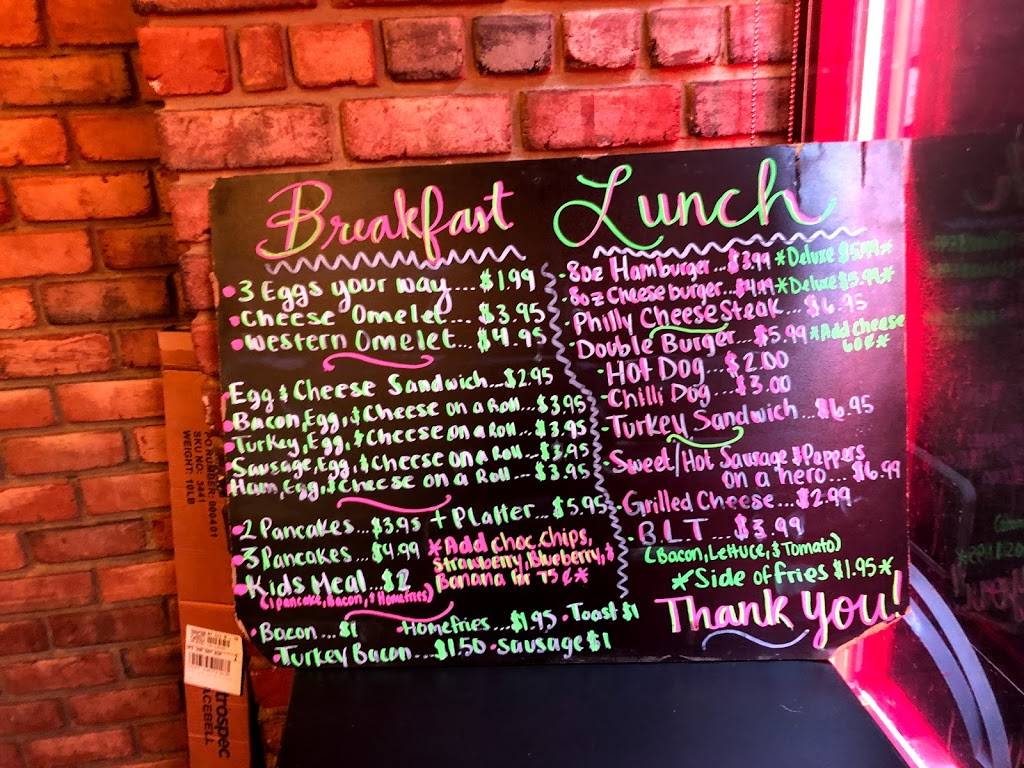 Breakfast
• 3 Eggs your way.... $1.99
• Cheese Omelet... $3.95
• Western Omelet... $4.95
Egg & Cheese Sandwich...$2.95
Bacon, Egg, & Cheese on a Roll...$3.95
Turkey, Egg, & Cheese on a Roll...$3.95
Sausage, Egg, & Cheese on a Roll...$3.95
Ham, Egg, & Cheese on a Roll...$3.95
• 2 Pancakes...$3.95 + Platter...$5.95
• 3 Pancakes...$4.99
*Add choc. chips,
Strawberry, Blueberry, &
Banana for 75¢*
• Kids Meal...$2
(1 pancake, Bacon, & Homefries)
• Bacon...$1 • Homefries...$1.95 • Toast $1
• Turkey Bacon...$1.50 • Sausage $1
Lunch
• 8oz Hamburger...$3.99 *Deluxe $5.99*
• 8oz Cheeseburger...$4.49 *Deluxe $5.99*
• Philly CheeseSteak... $6.95
• Double Burger...$5.99 *Add cheese
60¢*
• Hot Dog...$2.00
• Chilli Dog...$3.00
• Turkey Sandwich...$6.95
• Sweet/Hot Sausage & Peppers
on a hero...$6.99
• Grilled Cheese...$2.99
• B.L.T...$3.99
(Bacon, Lettuce, & Tomato)
*Side of fries $1.95*
Thank You!
PO NUMBER: 000401
SKU NO: 3441
WEIGHT: 10LB
trospec
ACEBELL